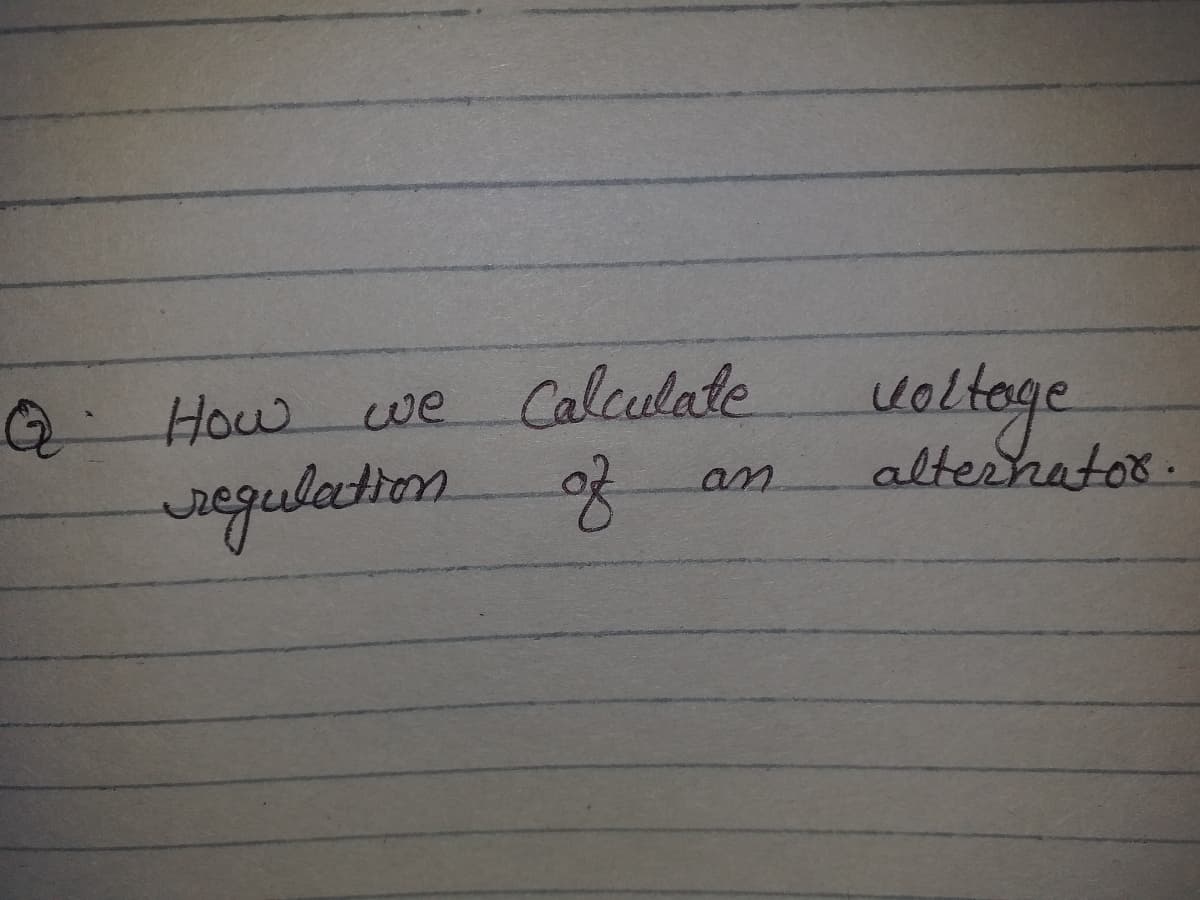 Q. How we Calculate voltage
regulation of an alternator.